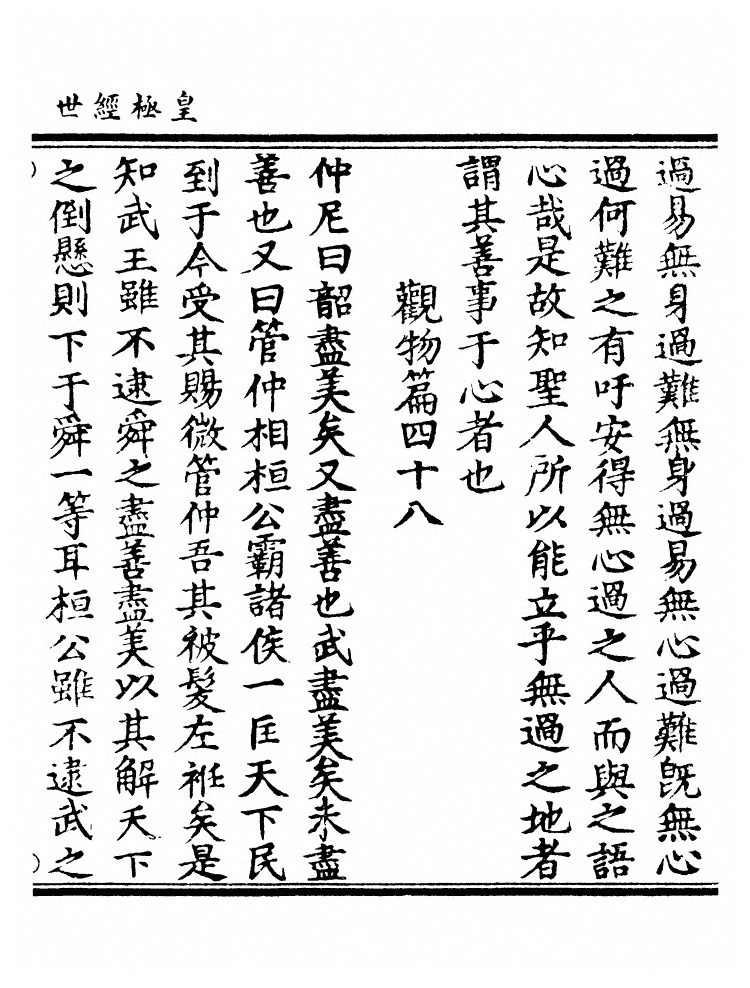 皇極經世
過易無身過難無身過易無心過難旣無心
過何難之有吁安得無心過之人而與之語
心哉是故知聖人所以能立乎無過之地者
謂其善事于心者也
觀物篇四十八
仲尼曰韶盡美矣又盡善也武盡美矣未盡
善也又曰管仲相桓公霸諸侯一匡天下民
到于今受其賜微管仲吾其被髮左袵矣是
知武王雖不逮舜之盡善盡美以其解天下
之倒懸則下于舜一等耳桓公雖不逮武之